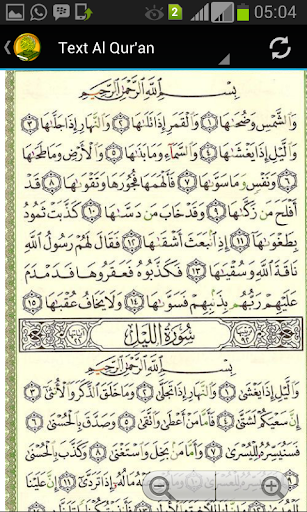 2
05:04
Text Al Qur'an
بِسْمِ اللَّهِ الرَّحْمَٰنِ الرَّحِيمِ
وَالشَّمْسِ وَضُحَىٰهَا ١ وَالْقَمَرِ إِذَا تَلَىٰهَا ٢ وَالنَّهَارِ إِذَا جَلَّىٰهَا ٣
وَاللَّيْلِ إِذَا يَغْشَىٰهَا ٤ وَالسَّمَاءِ وَمَا بَنَىٰهَا ٥ وَالْأَرْضِ وَمَا طَحَىٰهَا
٦ وَنَفْسٍ وَمَا سَوَّىٰهَا ٧ فَأَلْهَمَهَا فُجُورَهَا وَتَقْوَىٰهَا ٨ قَدْ
أَفْلَحَ مَن زَكَّىٰهَا ٩ وَقَدْ خَابَ مَن دَسَّىٰهَا ١٠ كَذَّبَتْ ثَمُودُ
بِطَغْوَىٰهَا ١١ إِذِ انبَعَثَ أَشْقَىٰهَا ١٢ فَقَالَ لَهُمْ رَسُولُ اللَّهِ
نَاقَةَ اللَّهِ وَسُقْيَٰهَا ١٣ فَكَذَّبُوهُ فَعَقَرُوهَا فَدَمْدَمَ
عَلَيْهِمْ رَبُّهُم بِذَنبِهِمْ فَسَوَّىٰهَا ١٤ وَلَا يَخَافُ عُقْبَٰهَا ١٥
سُورَةُ اللَّيْلِ
بِسْمِ اللَّهِ الرَّحْمَٰنِ الرَّحِيمِ
وَاللَّيْلِ إِذَا يَغْشَىٰ ١ وَالنَّهَارِ إِذَا تَجَلَّىٰ ٢ وَمَا خَلَقَ الذَّكَرَ وَالْأُنثَىٰ ٣
إِنَّ سَعْيَكُمْ لَشَتَّىٰ ٤ فَأَمَّا مَنْ أَعْطَىٰ وَاتَّقَىٰ ٥ وَصَدَّقَ بِالْحُسْنَىٰ ٦
فَسَنُيَسِّرُهُ لِلْيُسْرَىٰ ٧ وَأَمَّا مَن بَخِلَ وَاسْتَغْنَىٰ ٨ وَكَذَّبَ بِالْحُسْنَىٰ
٩ فَسَنُيَسِّرُهُ لِلْعُسْرَىٰ ١٠ وَمَا يُغْنِي عَنْهُ مَالُهُ إِذَا تَرَدَّىٰ ١١ إِنَّ عَلَيْنَا